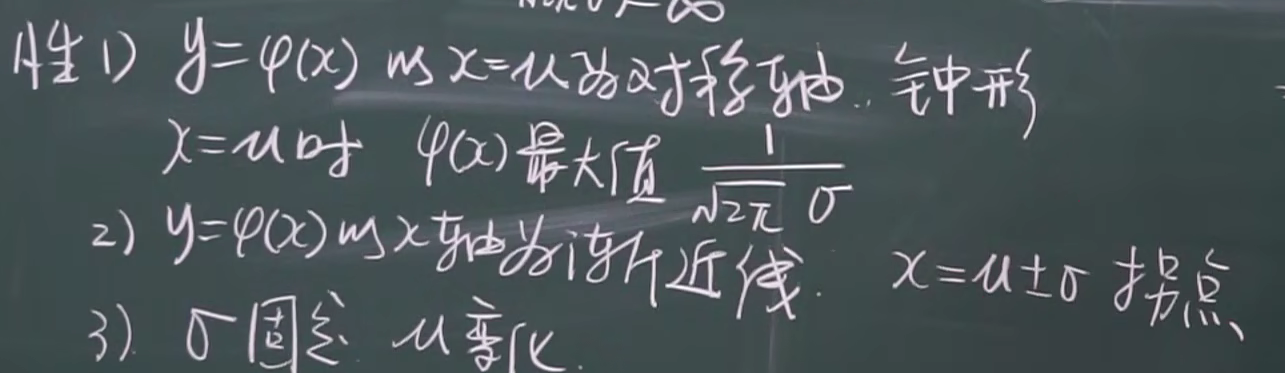 性1) y=φ(x) 以x=μ为对称轴. 钟形
x=μ时 φ(x)最大值 1/(√2π σ)
2) y=φ(x)以x轴为渐近线. x=μ±σ 拐点
3). σ固定 μ变化.